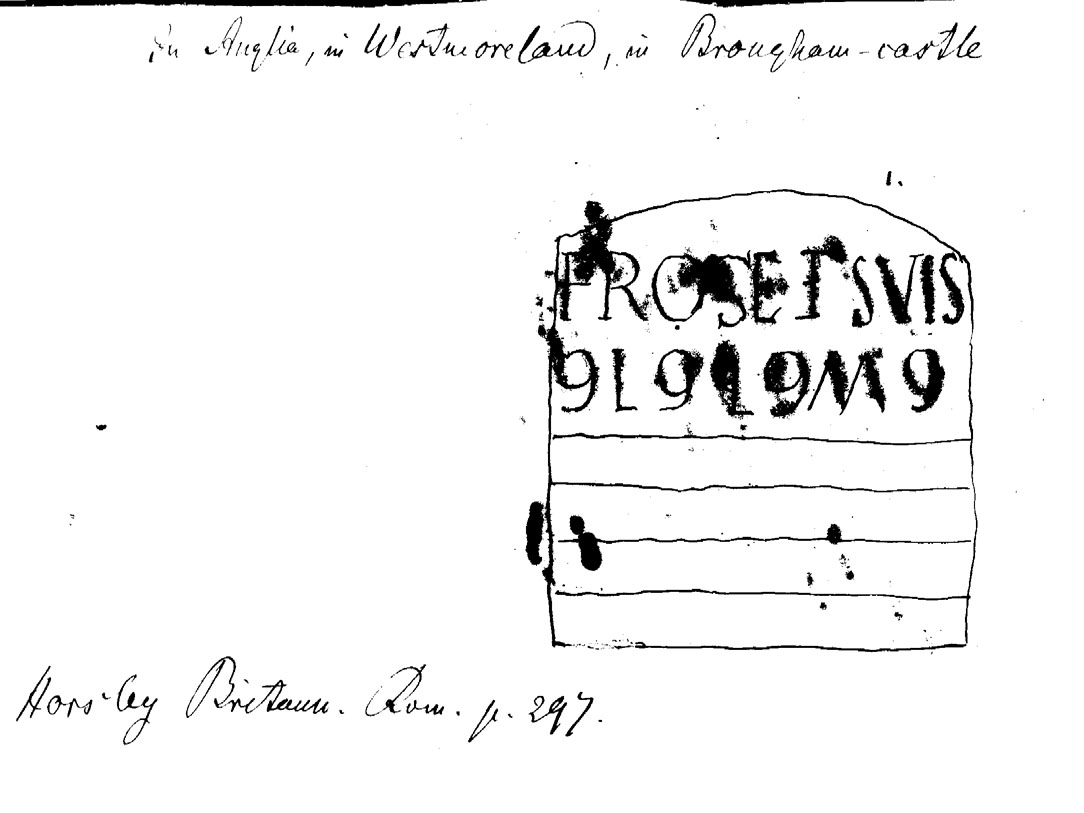 In Anglia, in Westmoreland, in Brougham-castle
1.
PROSETSVIS
9L9L9M9
Horsley Britann. Rom. p. 297.